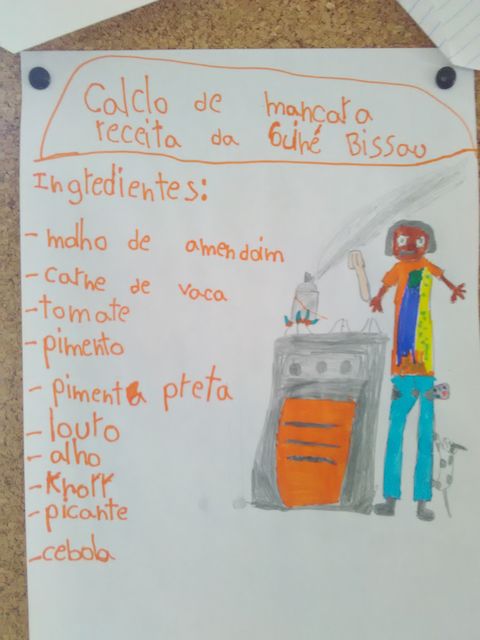 Calclo de mancara
receita da Guiné Bissau
Ingredientes:
- molho de amendoim
- carne de vaca
- tomate
- pimento
- pimenta preta
- louro
- alho
- Knorr
- picante
- cebola